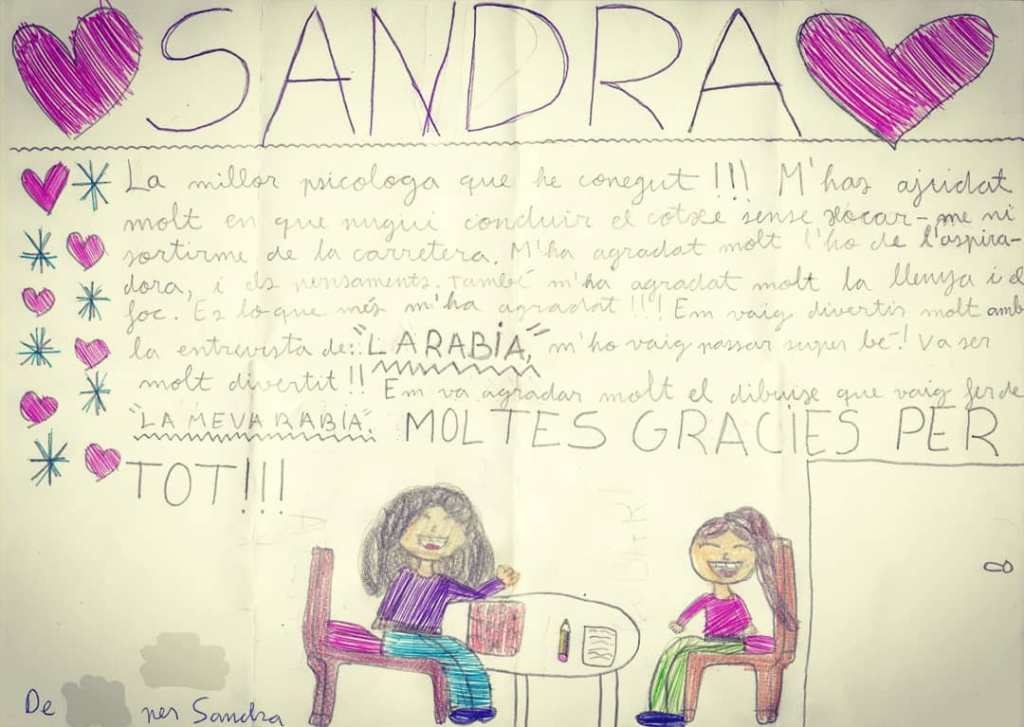 SANDRA
La millor psicologa que he conegut !!! M'has ajudat
molt en que ningú conduir el cotxe sense xocar-me ni
sortirme de la carretera. M'ha agradat molt l'ho de l'aspira-
dora, i els pensaments. també m'ha agradat molt la llenya i el
foc. Es lo que més m'ha agradat !!! Em vaig divertir molt amb
la entrevista de: "LA RABIA", m'ho vaig passar super bé! Va ser
molt divertit !! Em va agradar molt el dibuixe que vaig fer de
"LA MEVA RABIA". MOLTES GRACIES PER
TOT!!!
De per Sandra